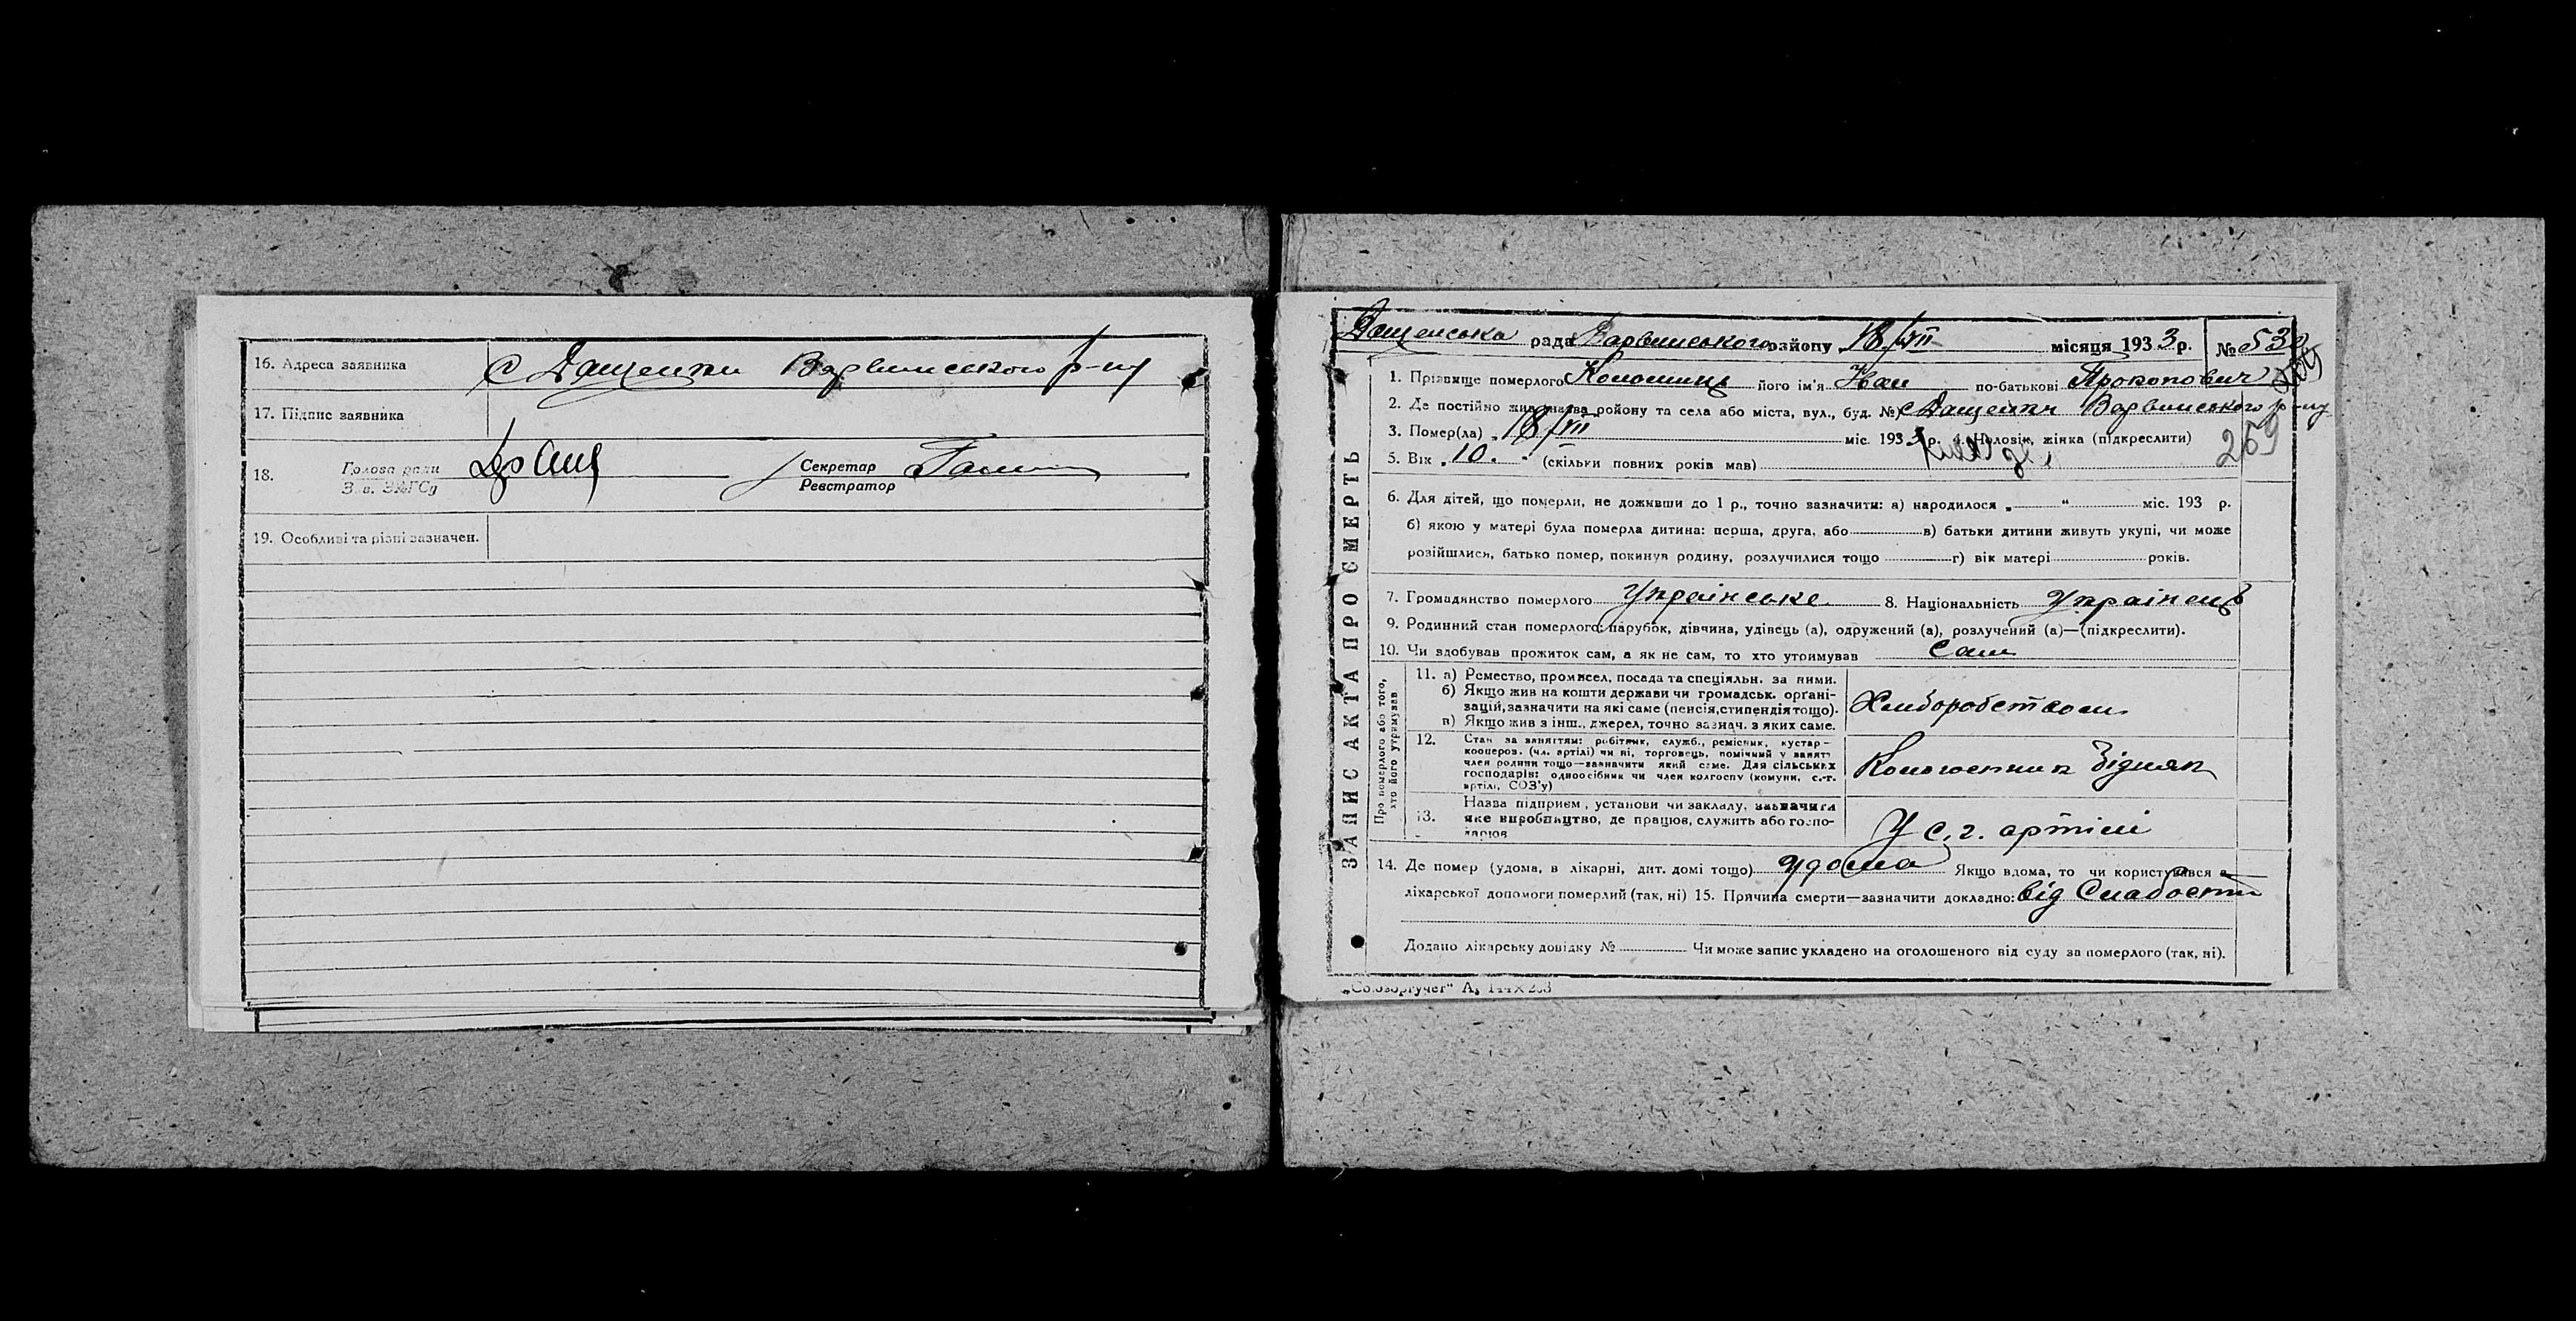 16. Адреса заявника с Дащенки Варвинського р-ну
17. Підпис заявника
18. Голова ради Секретар
З. в. ЗАГСу Реєстратор
19. Особливі та різні зазначен.
ЗАПИС АКТА ПРО СМЕРТЬ
Дащенська рада Варвинського району 18/VII місяця 1933 р. № 53
1. Прізвище померлого його ім'я Іван по-батькові Прокопович
2. Де постійно жив назва району та села або міста, вул., буд. № с Дащенки Варвинського р-ну
3. Помер(ла) „ 18/VII міс. 1933 р. 4. Чоловік, жінка (підкреслити) 269
5. Вік „ 10. (скільки повних років мав)
6. Для дітей, що померли, не доживши до 1 р., точно зазначити: а) народилося „ “ міс. 193 р.
б) якою у матері була померла дитина: перша, друга, або в) батьки дитини живуть укупі, чи може
розійшлися, батько помер, покинув родину, розлучилися тощо г) вік матері років.
7. Громадянство померлого Українське 8. Національність Українець
9. Родинний стан померлого: парубок, дівчина, удівець (а), одружений (а), розлучений (а)—(підкреслити).
10. Чи здобував прожиток сам, а як не сам, то хто утримував Сам
Про померлого або того, хто його утримував
11. а) Ремество, промисел, посада та спеціяльн. за ними.
б) Якщо жив на кошти держави чи громадськ. органі-
зацій, зазначити на які саме (пенсія, стипендія тощо).
в) Якщо жив з інш. джерел, точно зазнач. з яких саме.
Хліборобством
12. Стан за заняттям: робітник, служб., ремісник, кустар-
кооперов. (чл. артілі) чи ні, торговець, помічний у занят.
член родини тощо—зазначити який саме. Для сільських
господарів: одноосібник чи член колгоспу (комуни, с.-г.
артілі, СОЗ'у)
Колгоспник бідняк
13. Назва підприєм., установи чи закладу, зазначити
яке виробництво, де працюв, служить або госпо-
дарюв
У с. г. артілі
14. Де помер (удома, в лікарні, дит. домі тощо) удома Якщо вдома, то чи користувався з
лікарської допомоги померлий (так, ні) 15. Причина смерти—зазначити докладно: від Слабости
Додано лікарську довідку № Чи може запис укладено на оголошеного від суду за померлого (так, ні).
„Союзоргучет“